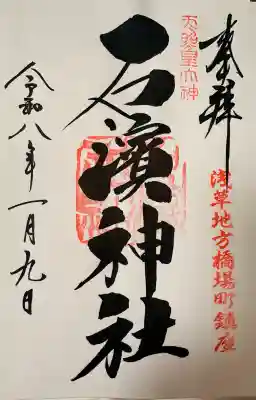 奉拝
浅草地方橋場町鎮座
天照皇大神
石濱神社
令和八年一月九日